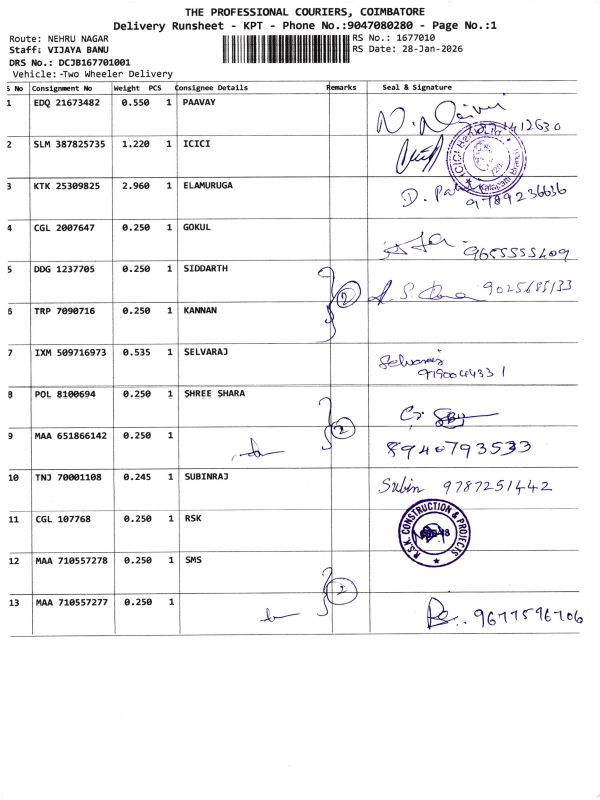 THE PROFESSIONAL COURIERS, COIMBATORE
Delivery Runsheet - KPT - Phone No.:9047080280 - Page No.:1
Route: NEHRU NAGAR RS No.: 1677010
Staff: VIJAYA BANU RS Date: 28-Jan-2026
DRS No.: DCJB167701001
Vehicle:-Two Wheeler Delivery
S No Consignment No Weight PCS Consignee Details Remarks Seal & Signature
1 EDQ 21673482 0.550 1 PAAVAY
2 SLM 387825735 1.220 1 ICICI
ICICI
3 KTK 25309825 2.960 1 ELAMURUGA D.
9789236636
4 CGL 2007647 0.250 1 GOKUL
9655555409
5 DDG 1237705 0.250 1 SIDDARTH 2 9025685133
6 TRP 7090716 0.250 1 KANNAN
7 IXM 509716973 0.535 1 SELVARAJ Selvaraj
9190044331
8 POL 8100694 0.250 1 SHREE SHARA
9 MAA 651866142 0.250 1 2 8940793533
10 TNJ 70001108 0.245 1 SUBINRAJ Subin 9787251442
11 CGL 107768 0.250 1 RSK R.S.K. CONSTRUCTION & PROJECTS
12 MAA 710557278 0.250 1 SMS 2
13 MAA 710557277 0.250 1 9677596706